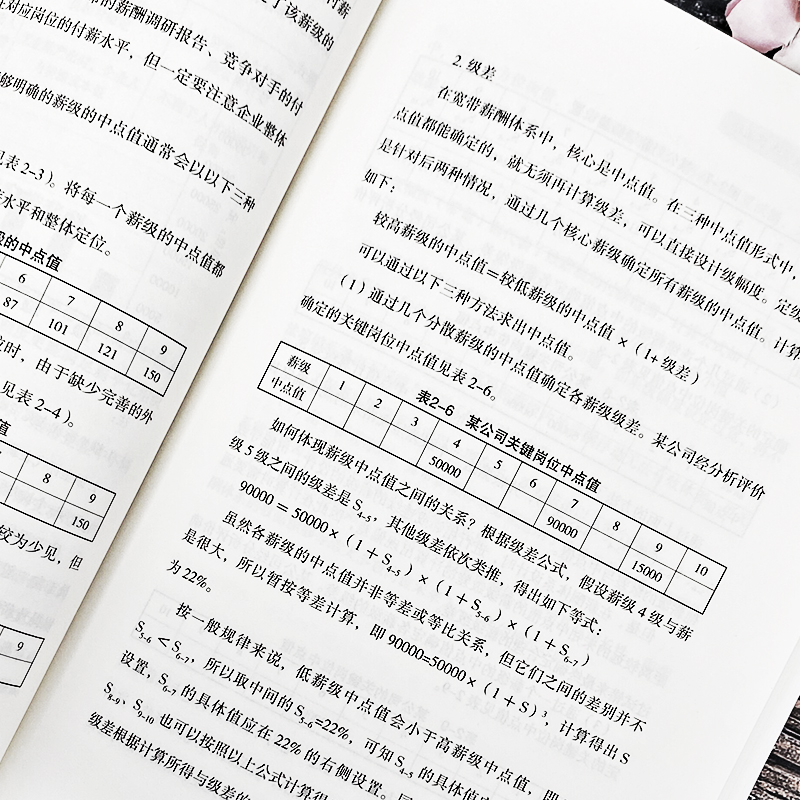 了该薪级的
的薪酬调研报告、竞争对手的付
对应岗位的付薪水平，但一定要注意企业整体
够明确的薪级的中点值通常会以以下三种
见表2-3）。将每一个薪级的中点值都
水平和整体定位。
的中点值
6 7 8 9
87 101 121 150
应时，由于缺少完善的外
见表2-4）。
值
7 8 9
150
较为少见，但
9
2. 级差
在宽带薪酬体系中，核心是中点值。在三种中点值形式中，
点值都能确定的，就无须再计算级差，可以直接设计级幅度。定级
是针对后两种情况，通过几个核心薪级确定所有薪级的中点值。计算
如下：
较高薪级的中点值=较低薪级的中点值×（1+级差）
可以通过以下三种方法求出中点值。
（1）通过几个分散薪级的中点值确定各薪级级差。某公司经分析评价
确定的关键岗位中点值见表2-6。
表2-6 某公司关键岗位中点值
薪级 1 2 3 4 5 6 7 8 9 10
中点值 50000 90000 15000
如何体现薪级中点值之间的关系？根据级差公式，假设薪级4级与薪
级5级之间的级差是S4-5，其他级差依次类推，得出如下等式：
90000=50000×（1+S4-5）×（1+S5-6）×（1+S6-7）
虽然各薪级的中点值并非等差或等比关系，但它们之间的差别并不
是很大，所以暂按等差计算，即90000=50000×（1+S）3，计算得出S
为22%。
按一般规律来说，低薪级中点值会小于高薪级中点值，即
S5-6＜S6-7，所以取中间的S5-6=22%，可知S4-5的具体值应
设置，S6-7的具体值应在22%的右侧设置。同
S8-9、S9-10也可以按照以上公式计算得
级差根据计算所得与级差的